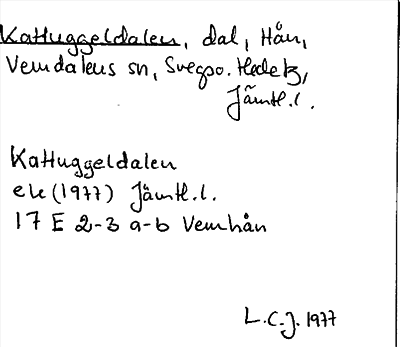 Kattuggeldalen, dal, Hån,
Vemdalens sn, Svegso. Hede tg,
Jämtl.l.
Kattuggeldalen
ek (1977) Jämtl.l.
17 E 2-3 a-b Vemhån
L.C.J. 1977